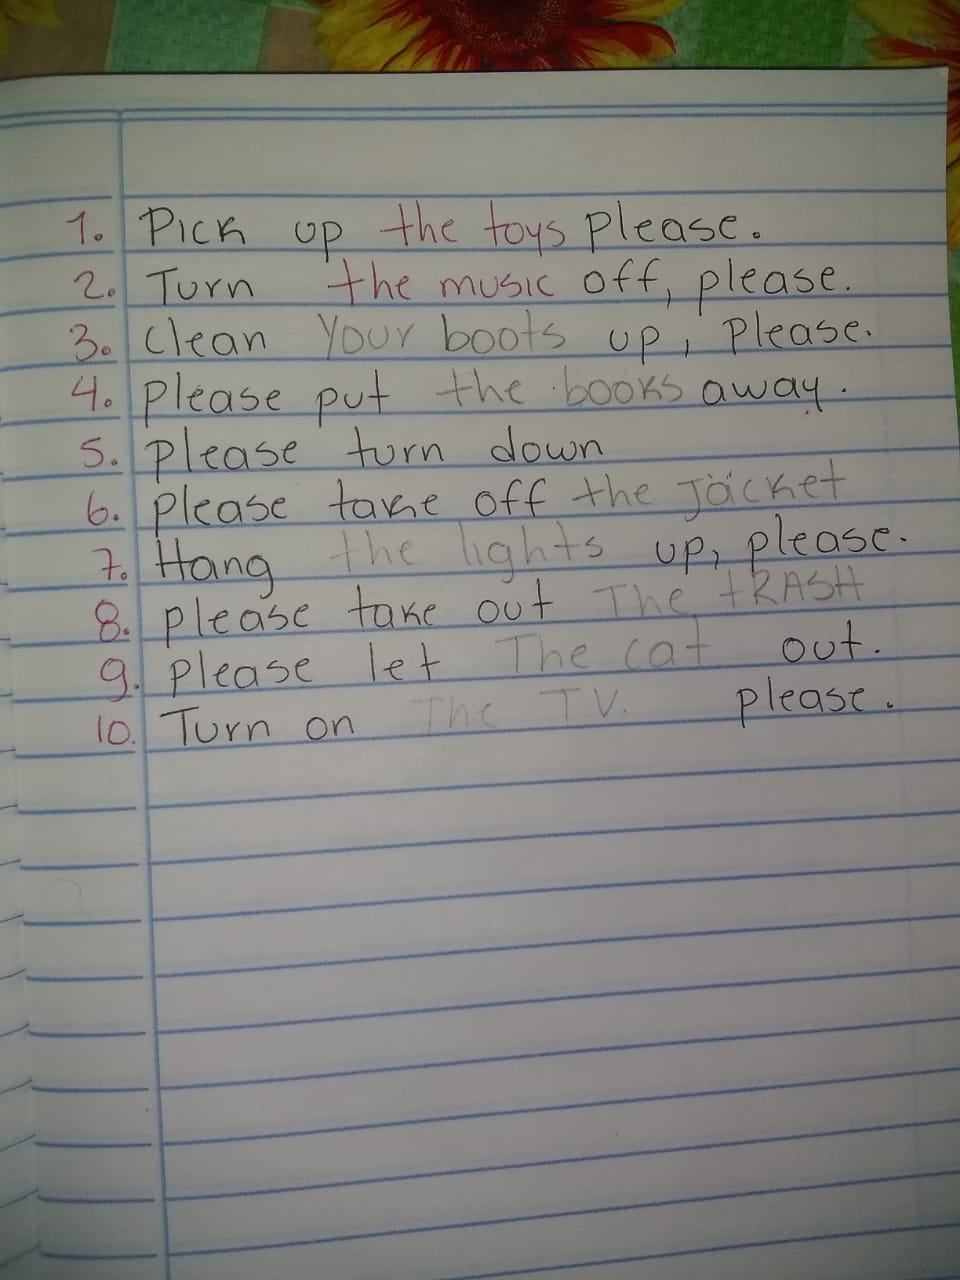 1. Pick up the toys please.
2. Turn the music off, please.
3. Clean Your boots up, Please.
4. Please put the books away.
5. Please turn down
6. Please take off the Jacket
7. Hang the lights up, please.
8. Please take out The tRASH
9. Please let The cat out.
10. Turn on The TV. please.